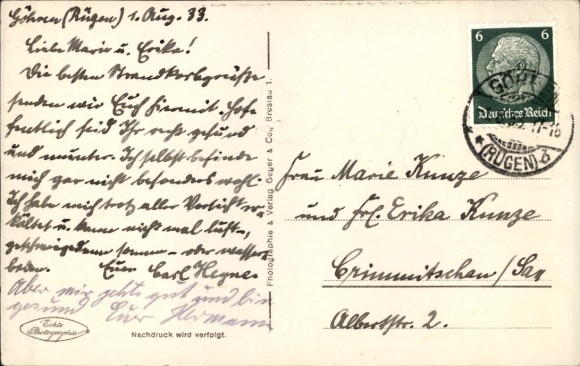 Göhren (Rügen) 1. Aug. 33.
Liebe Marie u. Erika!
Die besten Strandkorbgrüße
senden wir Euch hiermit. Hof-
fentlich seid Ihr recht gesund
und munter. Ich selbst befinde
mich gar nicht besonders wohl.
Ich habe mich trotz aller Vorsicht er-
kältet u. kann nicht mal luft-,
geschweigedenn sonnen- oder wasser-
baden. Euer Carl Hegner
Aber mir gehts gut und bin
gesund Euer Hermann
Echte
Photographie
Nachdruck wird verfolgt.
Photographie & Verlag Geyer & Co., Breslau 1.
6 6
Deutsches Reich
GÖHREN
11-12
(RÜGEN)
Frau Marie Kunze
und Frl. Erika Kunze
Crimmitschau/Sa
Albertstr. 2.